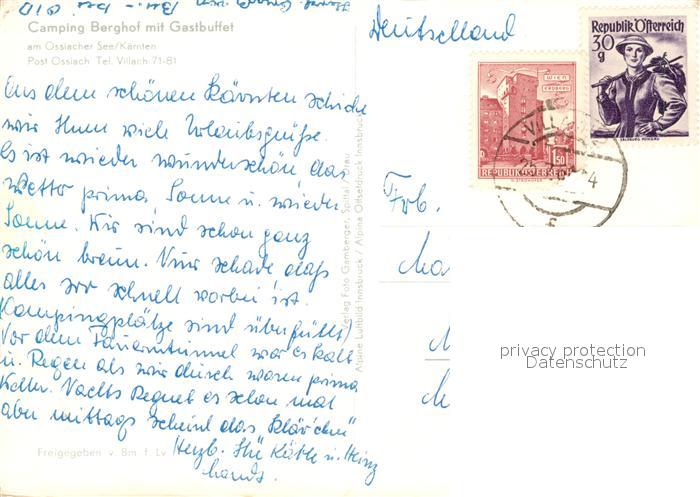 Camping Berghof mit Gastbuffet
am Ossiacher See/Kärnten
Post Ossiach Tel. Villach 71-81
Aus dem schönen Kärnten schicke
wir Ihnen viele Urlaubsgrüße.
Es ist wieder wunderschön das
Wetter prima Sonne u. wieder
Sonne. Wir sind schon ganz
schön braun. Nur schade daß
alles so schnell vorbei ist.
(Kampingplätze sind überfüllt)
Vor dem Tauerntunnel war es kalt
u. Regen als wir durch waren prima
Wetter. Nachts Regnet es schon mal
aber mittags scheint das Klärchen"
Herzl. Ihr Käthe u. Heinz
Freigegeben v. Bm. f. Lv.
Verlag Foto Gamberger, Spittal/Drau
Alpine Luftbild Innsbruck / Alpina Offsetdruck Innsbruck
Deutschland
REPUBLIK ÖSTERREICH
WIEN
ERDBERG
1.50
Republik Österreich
30
g
SALZBURG, PONGAU
Frb.
privacy protection
Datenschutz